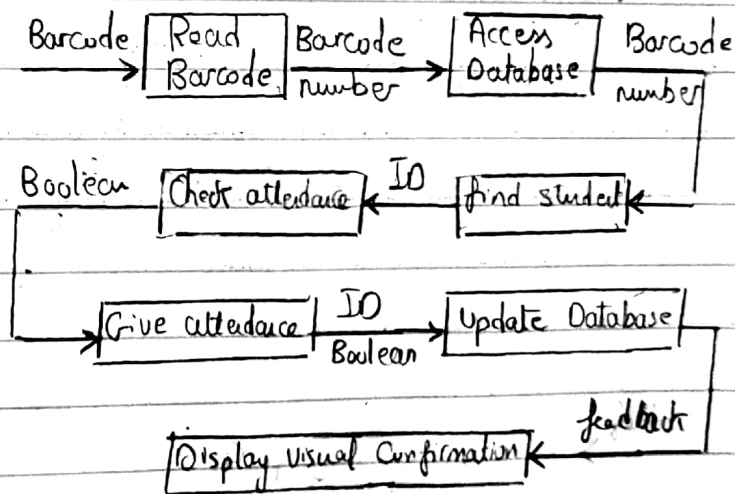 Barcode
Read
Barcode
Barcode
number
Access
Database
Barcode
number
find student
ID
Check attendance
Boolean
Give attendance
ID
Boolean
Update Database
feedback
Display Visual Confirmation